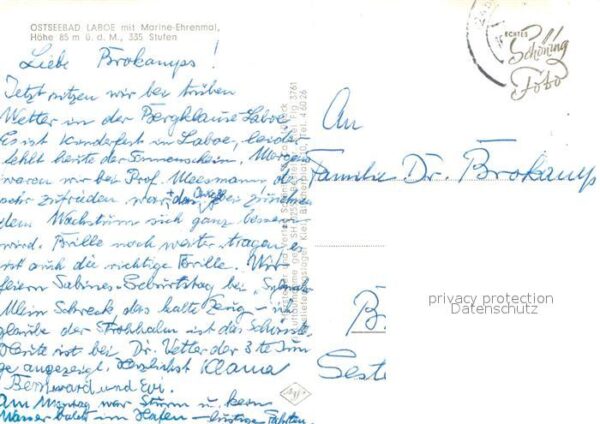 OSTSEEBAD LABOE mit Marine-Ehrenmal,
Höhe 85 m ü. d. M., 335 Stufen
Liebe Brokamps!
Jetzt sitzen wir bei trüben
Wetter in der Bergklause Laboe
Es ist Kinderfest in Laboe, leider
fehlt heute der Sonnenschein. Morgens
waren wir bei Prof. Meesmann, der
sehr zufrieden war, das bei
dem Wachstum sich ganz
wird. Brille noch weiter tragen, es
ist auch die richtige Brille. Wir
feiern Sabines Geburtstag bei
Mein Schreck, das kalte Zeug - ich
glaube der Strohhalm ist das Schönste
Heute ist bei Dr. Vetter der 3te Jun
ge angezeigt. Herzlichst Klama
Bernward und Evi.
Am Montag war Sturm u. kein
Wasser im Hafen - lustige Fahrten.
ECHTES
Schöning
Foto
An
Familie Dr. Brokamp
B
Seste
privacy protection
Datenschutz
Agfa